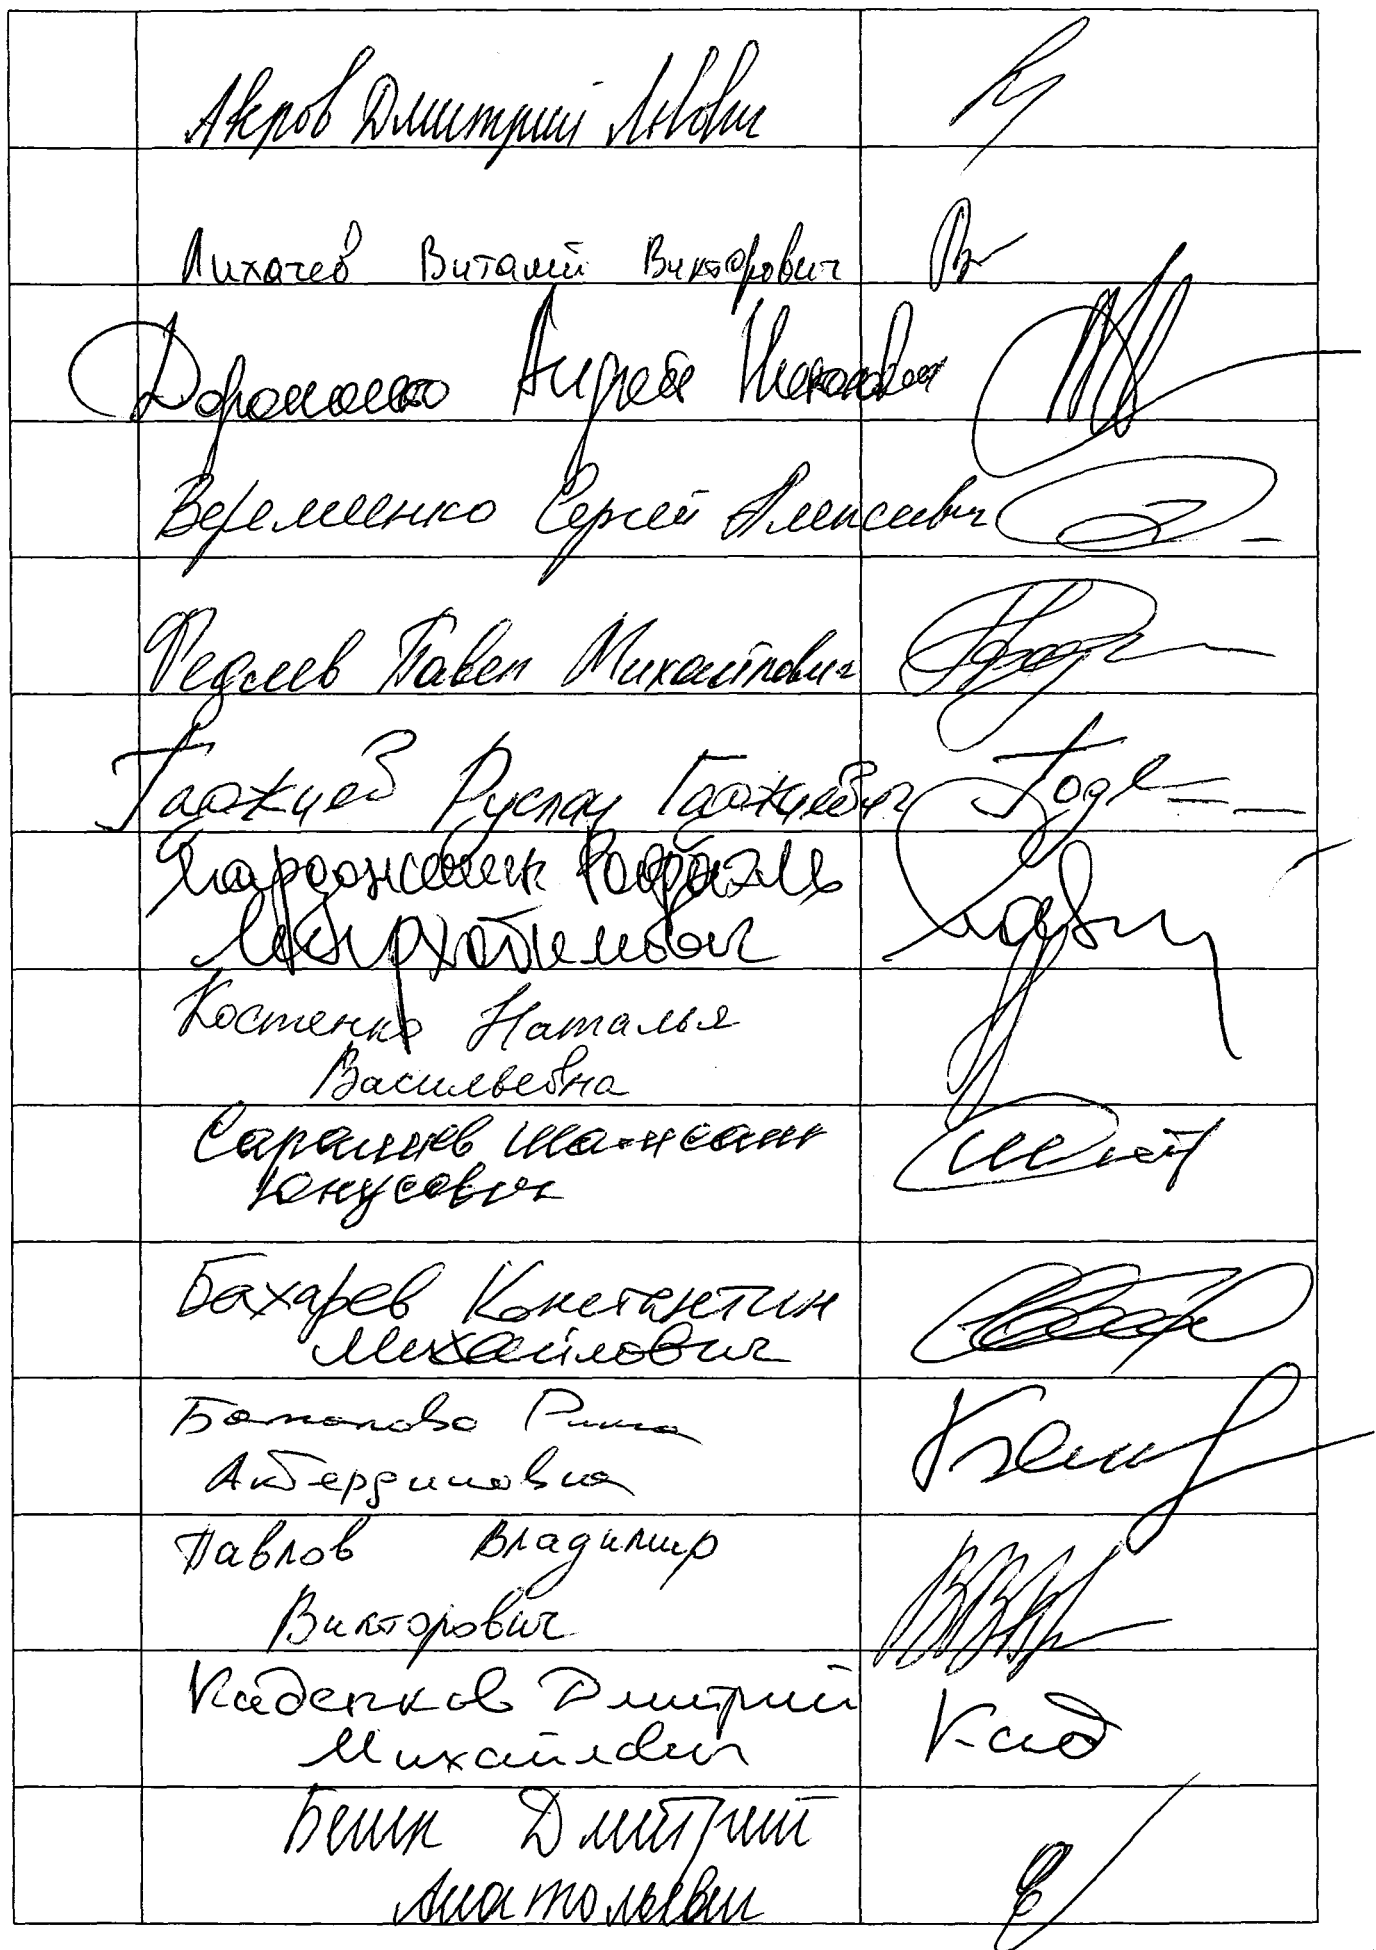 Акров Дмитрий Львович
Лихачев Виталий Викторович
Дорошенко Андрей Николаевич
Веремеенко Сергей Алексеевич
Федяев Павел Михайлович
Гаджиев Руслан Гаджиевич
Марданшин Рафаэль
Мирхатимович
Костенко Наталья
Васильевна
Саралиев Шамсаил
Юнусович
Бахарев Константин
Михайлович
Баталова Рима
Акбердиновна
Павлов Владимир
Викторович
Каденков Дмитрий
Михайлович
Кад
Белик Дмитрий
Анатольевич